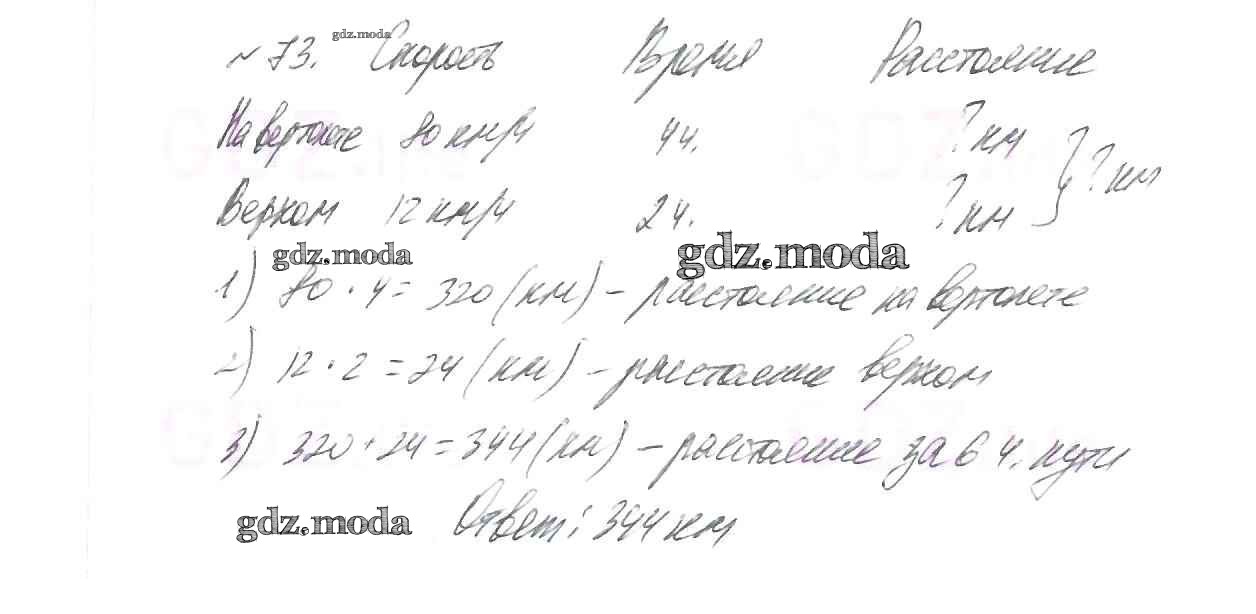 № 73. Скорость Время Расстояние
gdz.moda
На вертолете 80 км/ч 4 ч. ? км
? км
Верхом 12 км/ч 2 ч. ? км
gdz.moda gdz.moda
1) 80 · 4 = 320 (км) – расстояние на вертолете
2) 12 · 2 = 24 (км) – расстояние верхом
3) 320 + 24 = 344 (км) – расстояние за 6 ч. пути
gdz.moda Ответ: 344 км